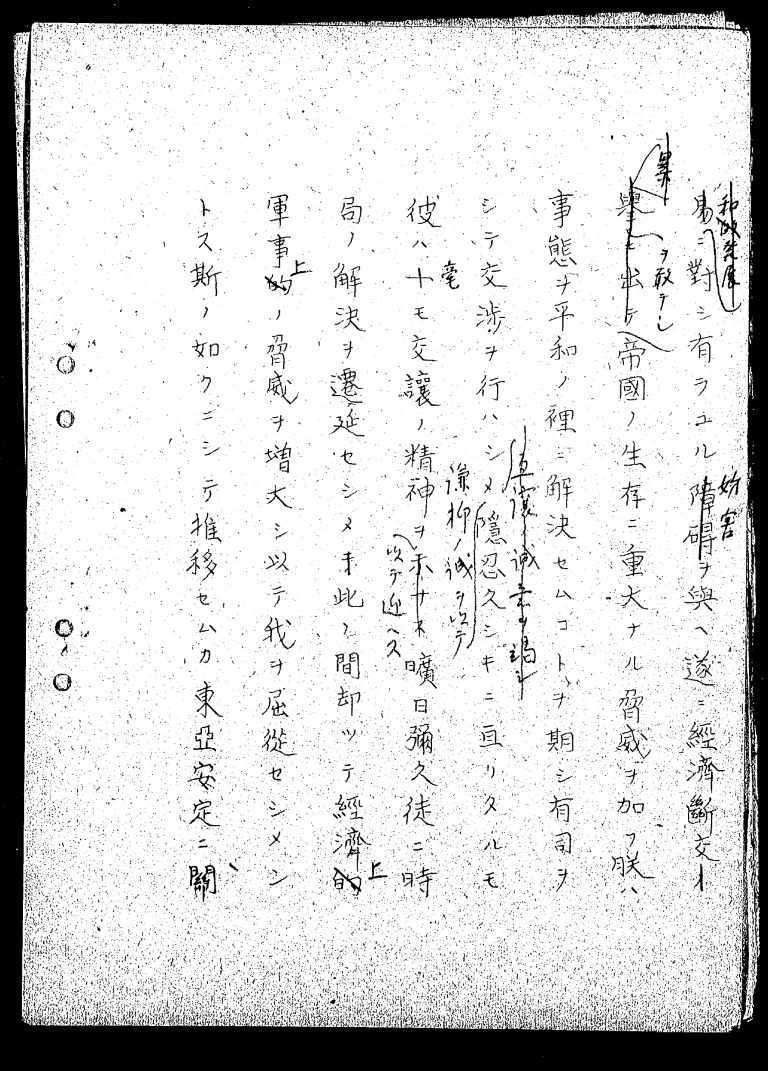 和的発展
易ニ對シ有ラユル障碍ヲ與ヘ遂ニ經濟斷交ノ
妨害
暴
擧ニ出テ帝國ノ生存ニ重大ナル脅威ヲ加フ朕ハ
ヲ敢テシ
事態ヲ平和ノ裡ニ解決セムコトヲ期シ有司ヲ
シテ交渉ヲ行ハシメ隱忍久シキニ亘リタルモ
互讓ノ誠意ヲ竭シ
謙抑ノ誠ヲ以テ
彼ハ一モ交讓ノ精神ヲ示サス曠日彌久徒ニ時
毫
以テ迎ヘス
局ノ解決ヲ遷延セシメ未此ノ間却ツテ經濟的
上
軍事的ノ脅威ヲ增大シ以テ我ヲ屈從セシメン
上
トス斯ノ如クニシテ推移セムカ東亞安定ニ關